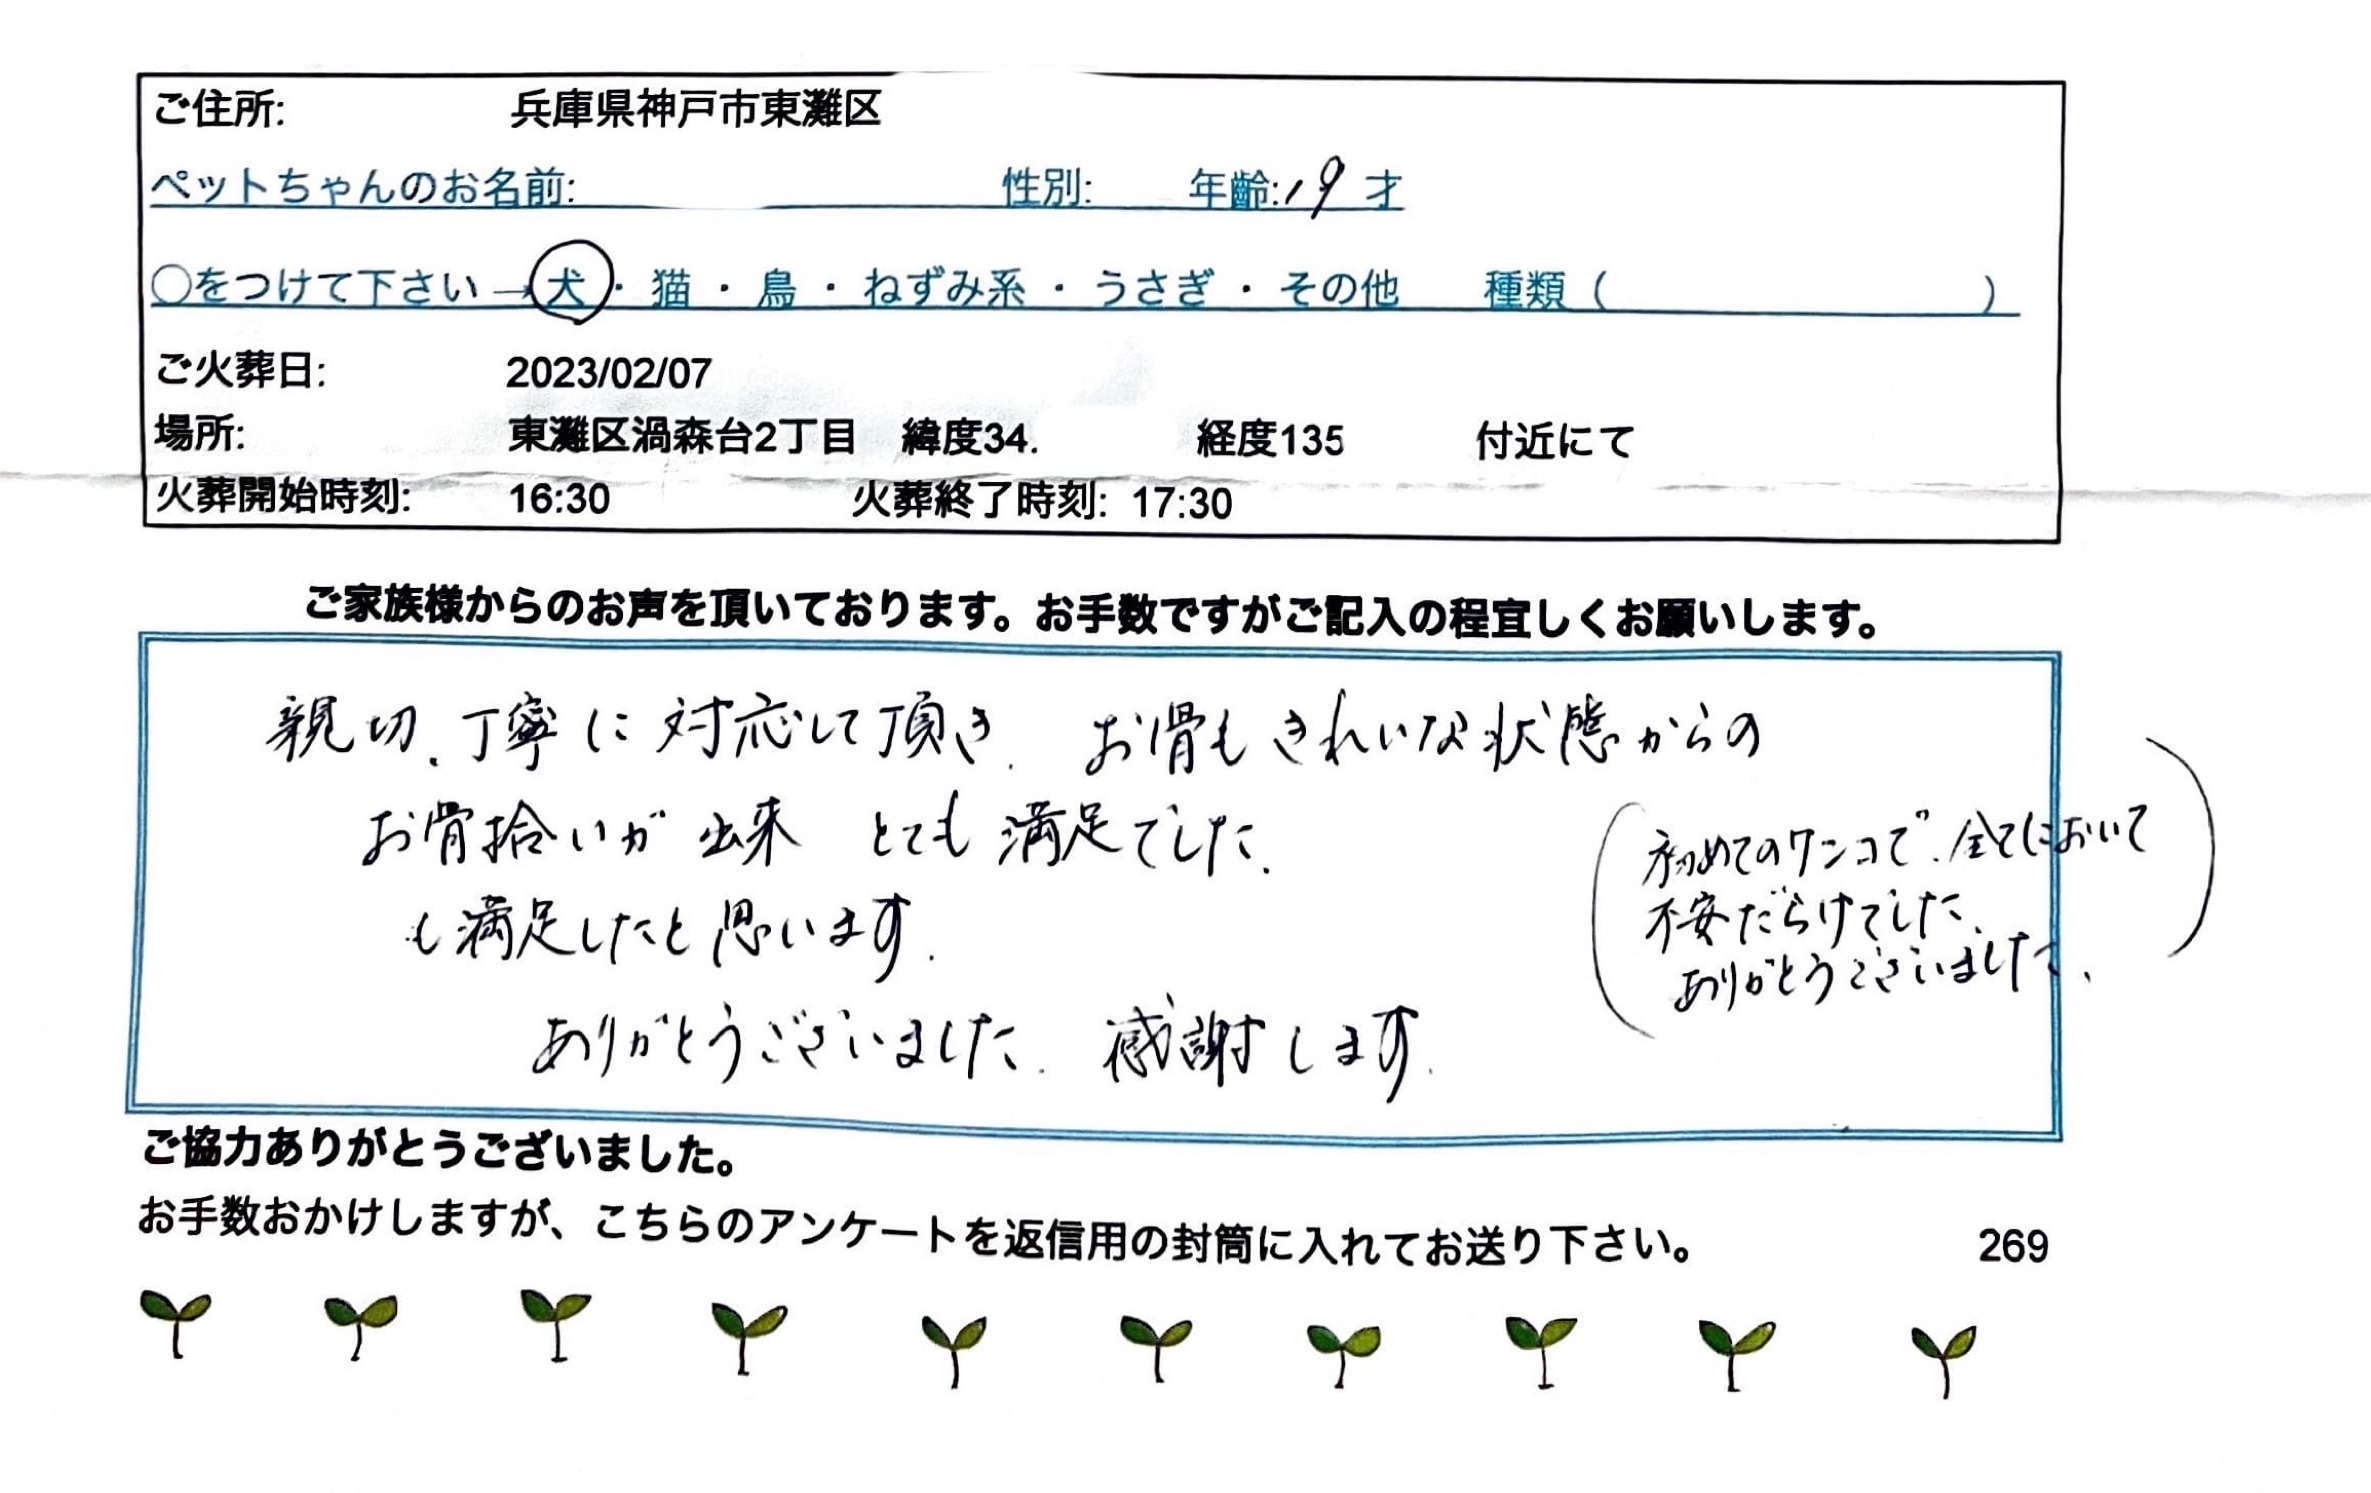 ご住所: 兵庫県神戸市東灘区
ペットちゃんのお名前: 性別: 年齢:19才
○をつけて下さい→犬・猫・鳥・ねずみ系・うさぎ・その他 種類( )
ご火葬日: 2023/02/07
場所: 東灘区渦森台2丁目 緯度34. 経度135 付近にて
火葬開始時刻: 16:30 火葬終了時刻: 17:30
ご家族様からのお声を頂いております。お手数ですがご記入の程宜しくお願いします。
親切、丁寧に対応して頂き、お骨もきれいな状態からの
お骨拾いが出来 とても満足でした.
も満足したと思います.
ありがとうございました. 感謝します.
(初めてのワンコで、全てにおいて
不安だらけでした、
ありがとうございました、)
ご協力ありがとうございました。
お手数おかけしますが、こちらのアンケートを返信用の封筒に入れてお送り下さい。 269